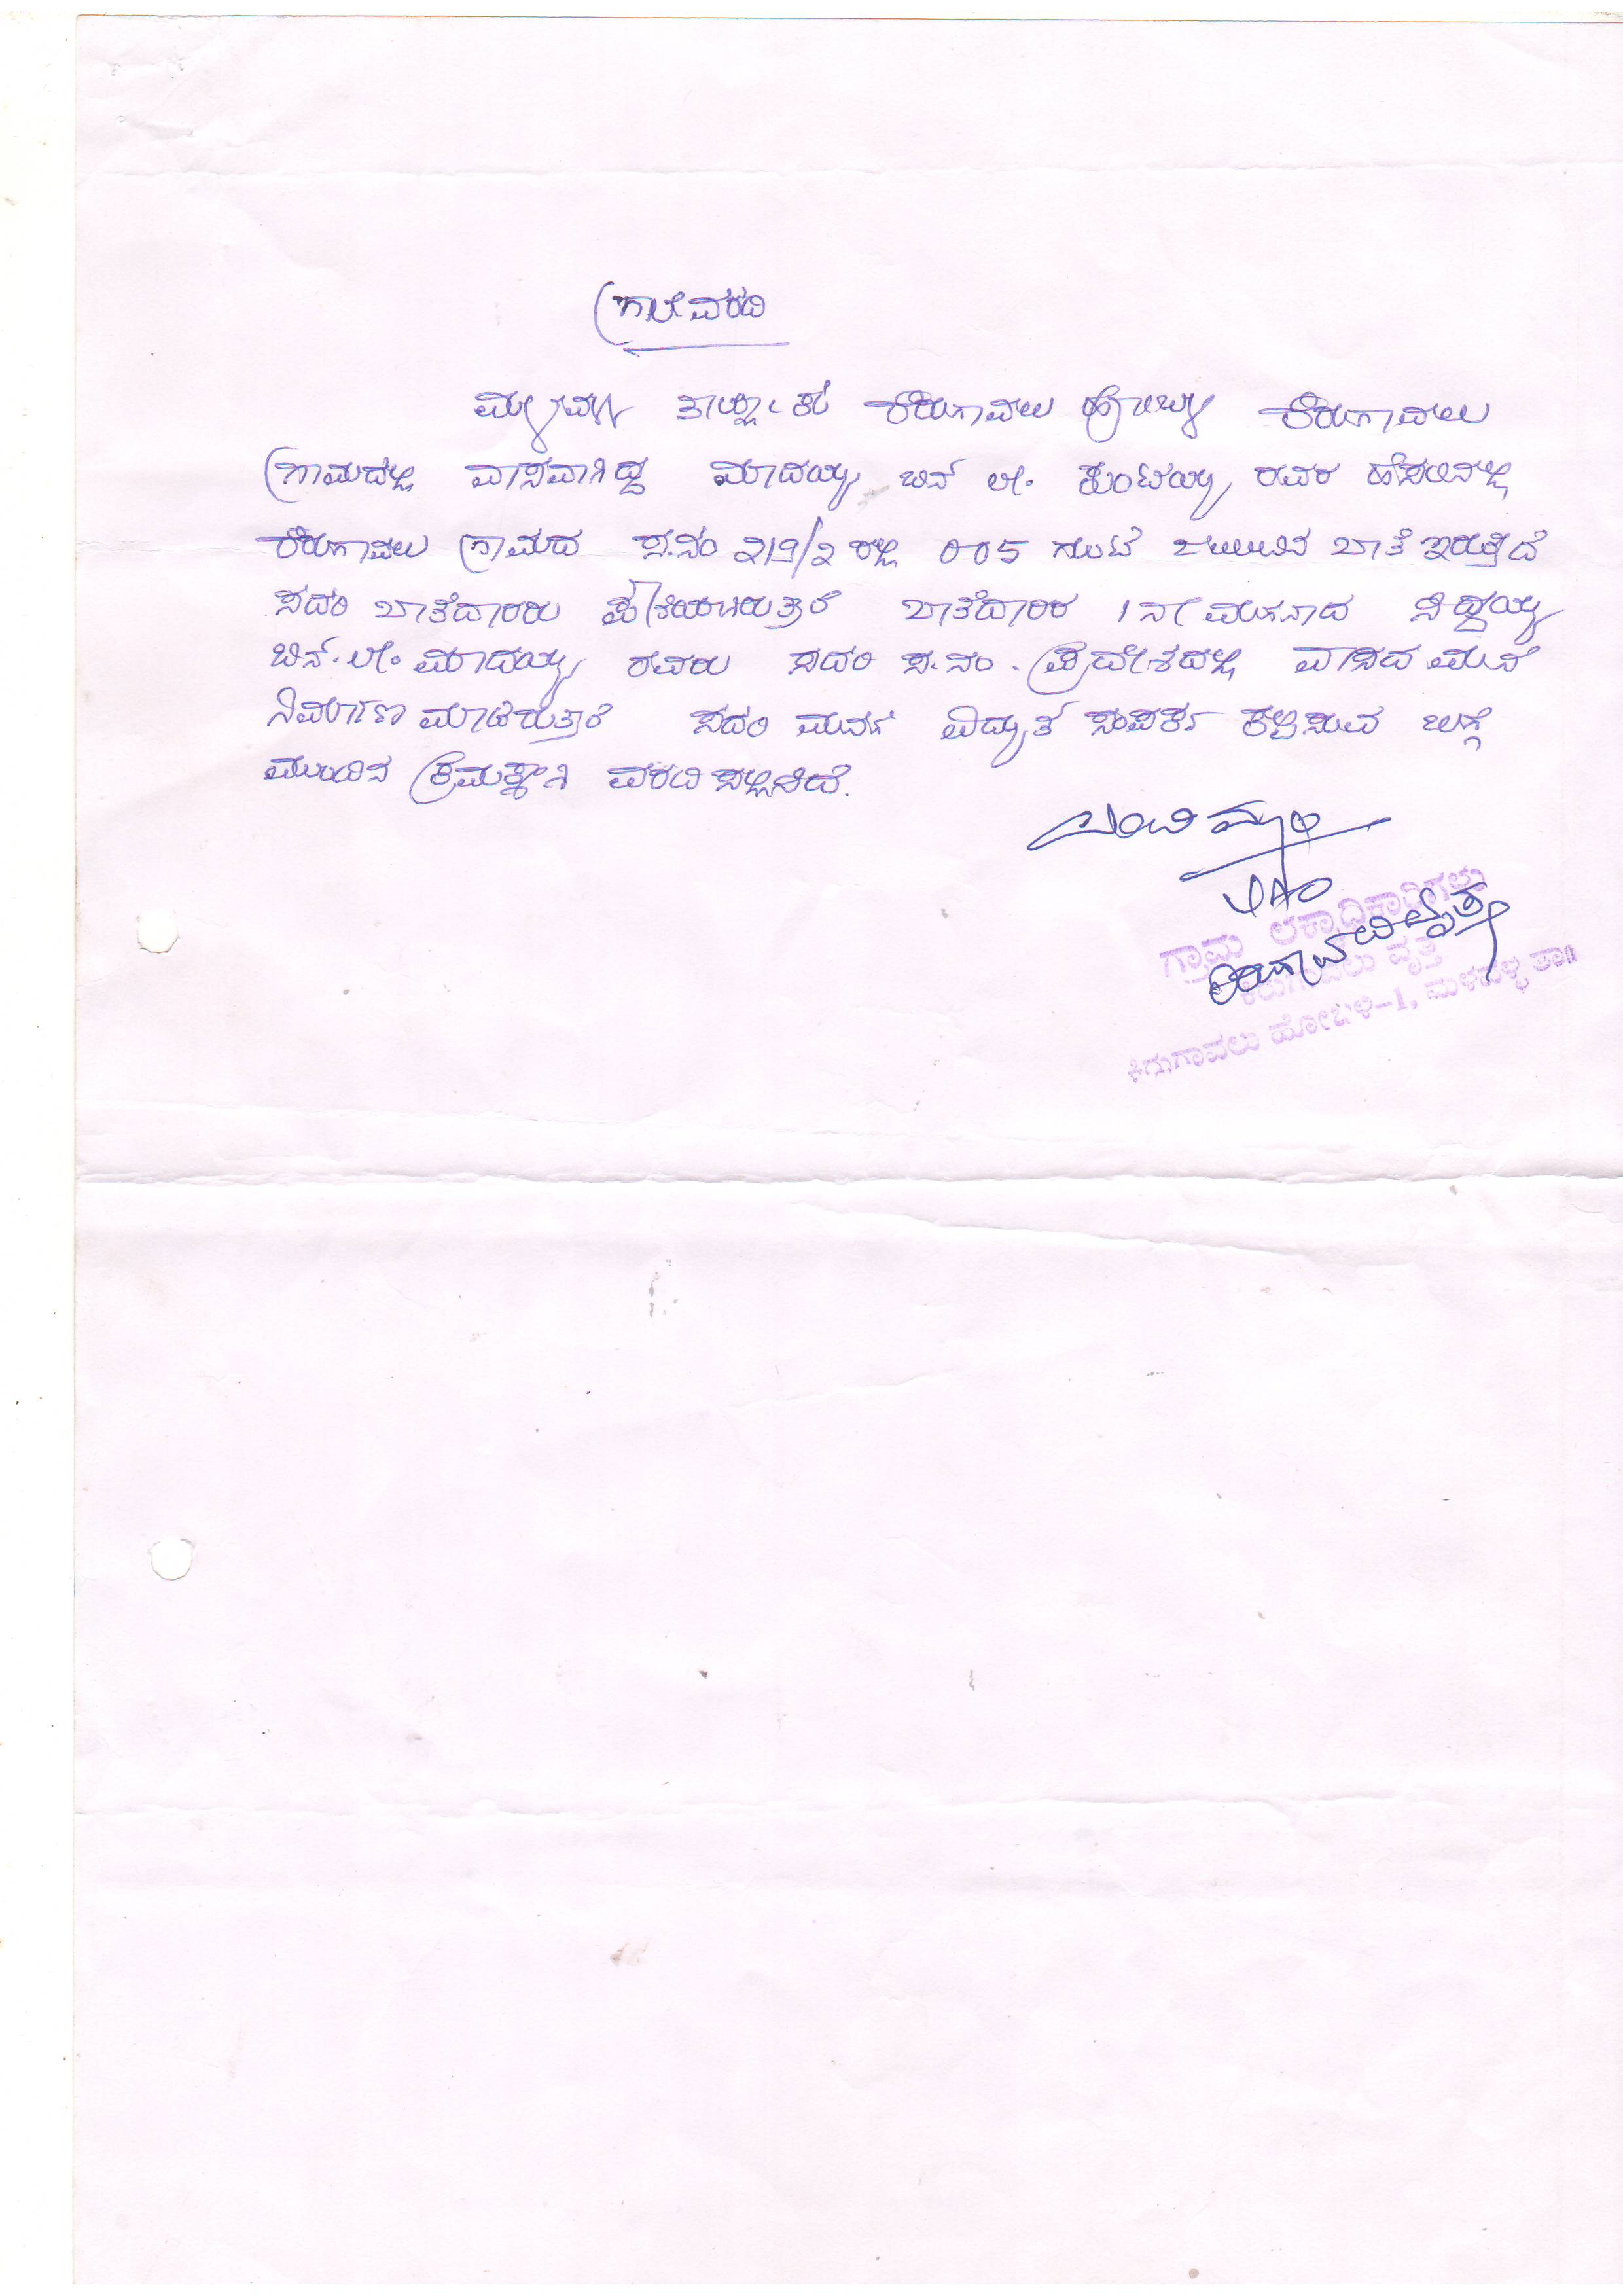 ಗ್ರಾಲೆ ವರದಿ
ಮಳವಳ್ಳಿ ತಾಲ್ಲೂಕು ಕಿರುಗಾವಲು ಹೋಬಳಿ ಕಿರುಗಾವಲು
ಗ್ರಾಮದಲ್ಲಿ ವಾಸವಾಗಿದ್ದ ಮಾದಯ್ಯ ಬಿನ್ ಲೇ. ಕುಂಟಯ್ಯ ರವರ ಹೆಸರಿನಲ್ಲಿ
ಕಿರುಗಾವಲು ಗ್ರಾಮದ ಸ.ನಂ 219/2 ರಲ್ಲಿ 005 ಗುಂಟೆ ಜಮೀನಿನ ಖಾತೆ ಇರುತ್ತದೆ
ಸದರಿ ಖಾತೆದಾರರು ಪೌತಿಯಾಗಿರುತ್ತಾರೆ ಖಾತೆದಾರರ 1ನೇ ಮಗನಾದ ಸಿದ್ದಯ್ಯ
ಬಿನ್. ಲೇ. ಮಾದಯ್ಯ ರವರು ಸದರಿ ಸ.ನಂ. ಪ್ರದೇಶದಲ್ಲಿ ವಾಸದ ಮನೆ
ನಿರ್ಮಾಣ ಮಾಡಿರುತ್ತಾರೆ ಸದರಿ ಮನೆಗೆ ವಿದ್ಯುತ್ ಸಂಪರ್ಕ ಕಲ್ಪಿಸುವ ಬಗ್ಗೆ
ಮುಂದಿನ ಕ್ರಮಕ್ಕಾಗಿ ವರದಿ ಸಲ್ಲಿಸಿದೆ.
VAO
ಗ್ರಾಮ ಲೆಕ್ಕಾಧಿಕಾರಿಗಳು
ಕಿರುಗಾವಲು ವೃತ್ತ
ಕಿರುಗಾವಲು ವೃತ್ತ
ಕಿರುಗಾವಲು ಹೋಬಳಿ-1, ಮಳವಳ್ಳಿ ತಾ॥